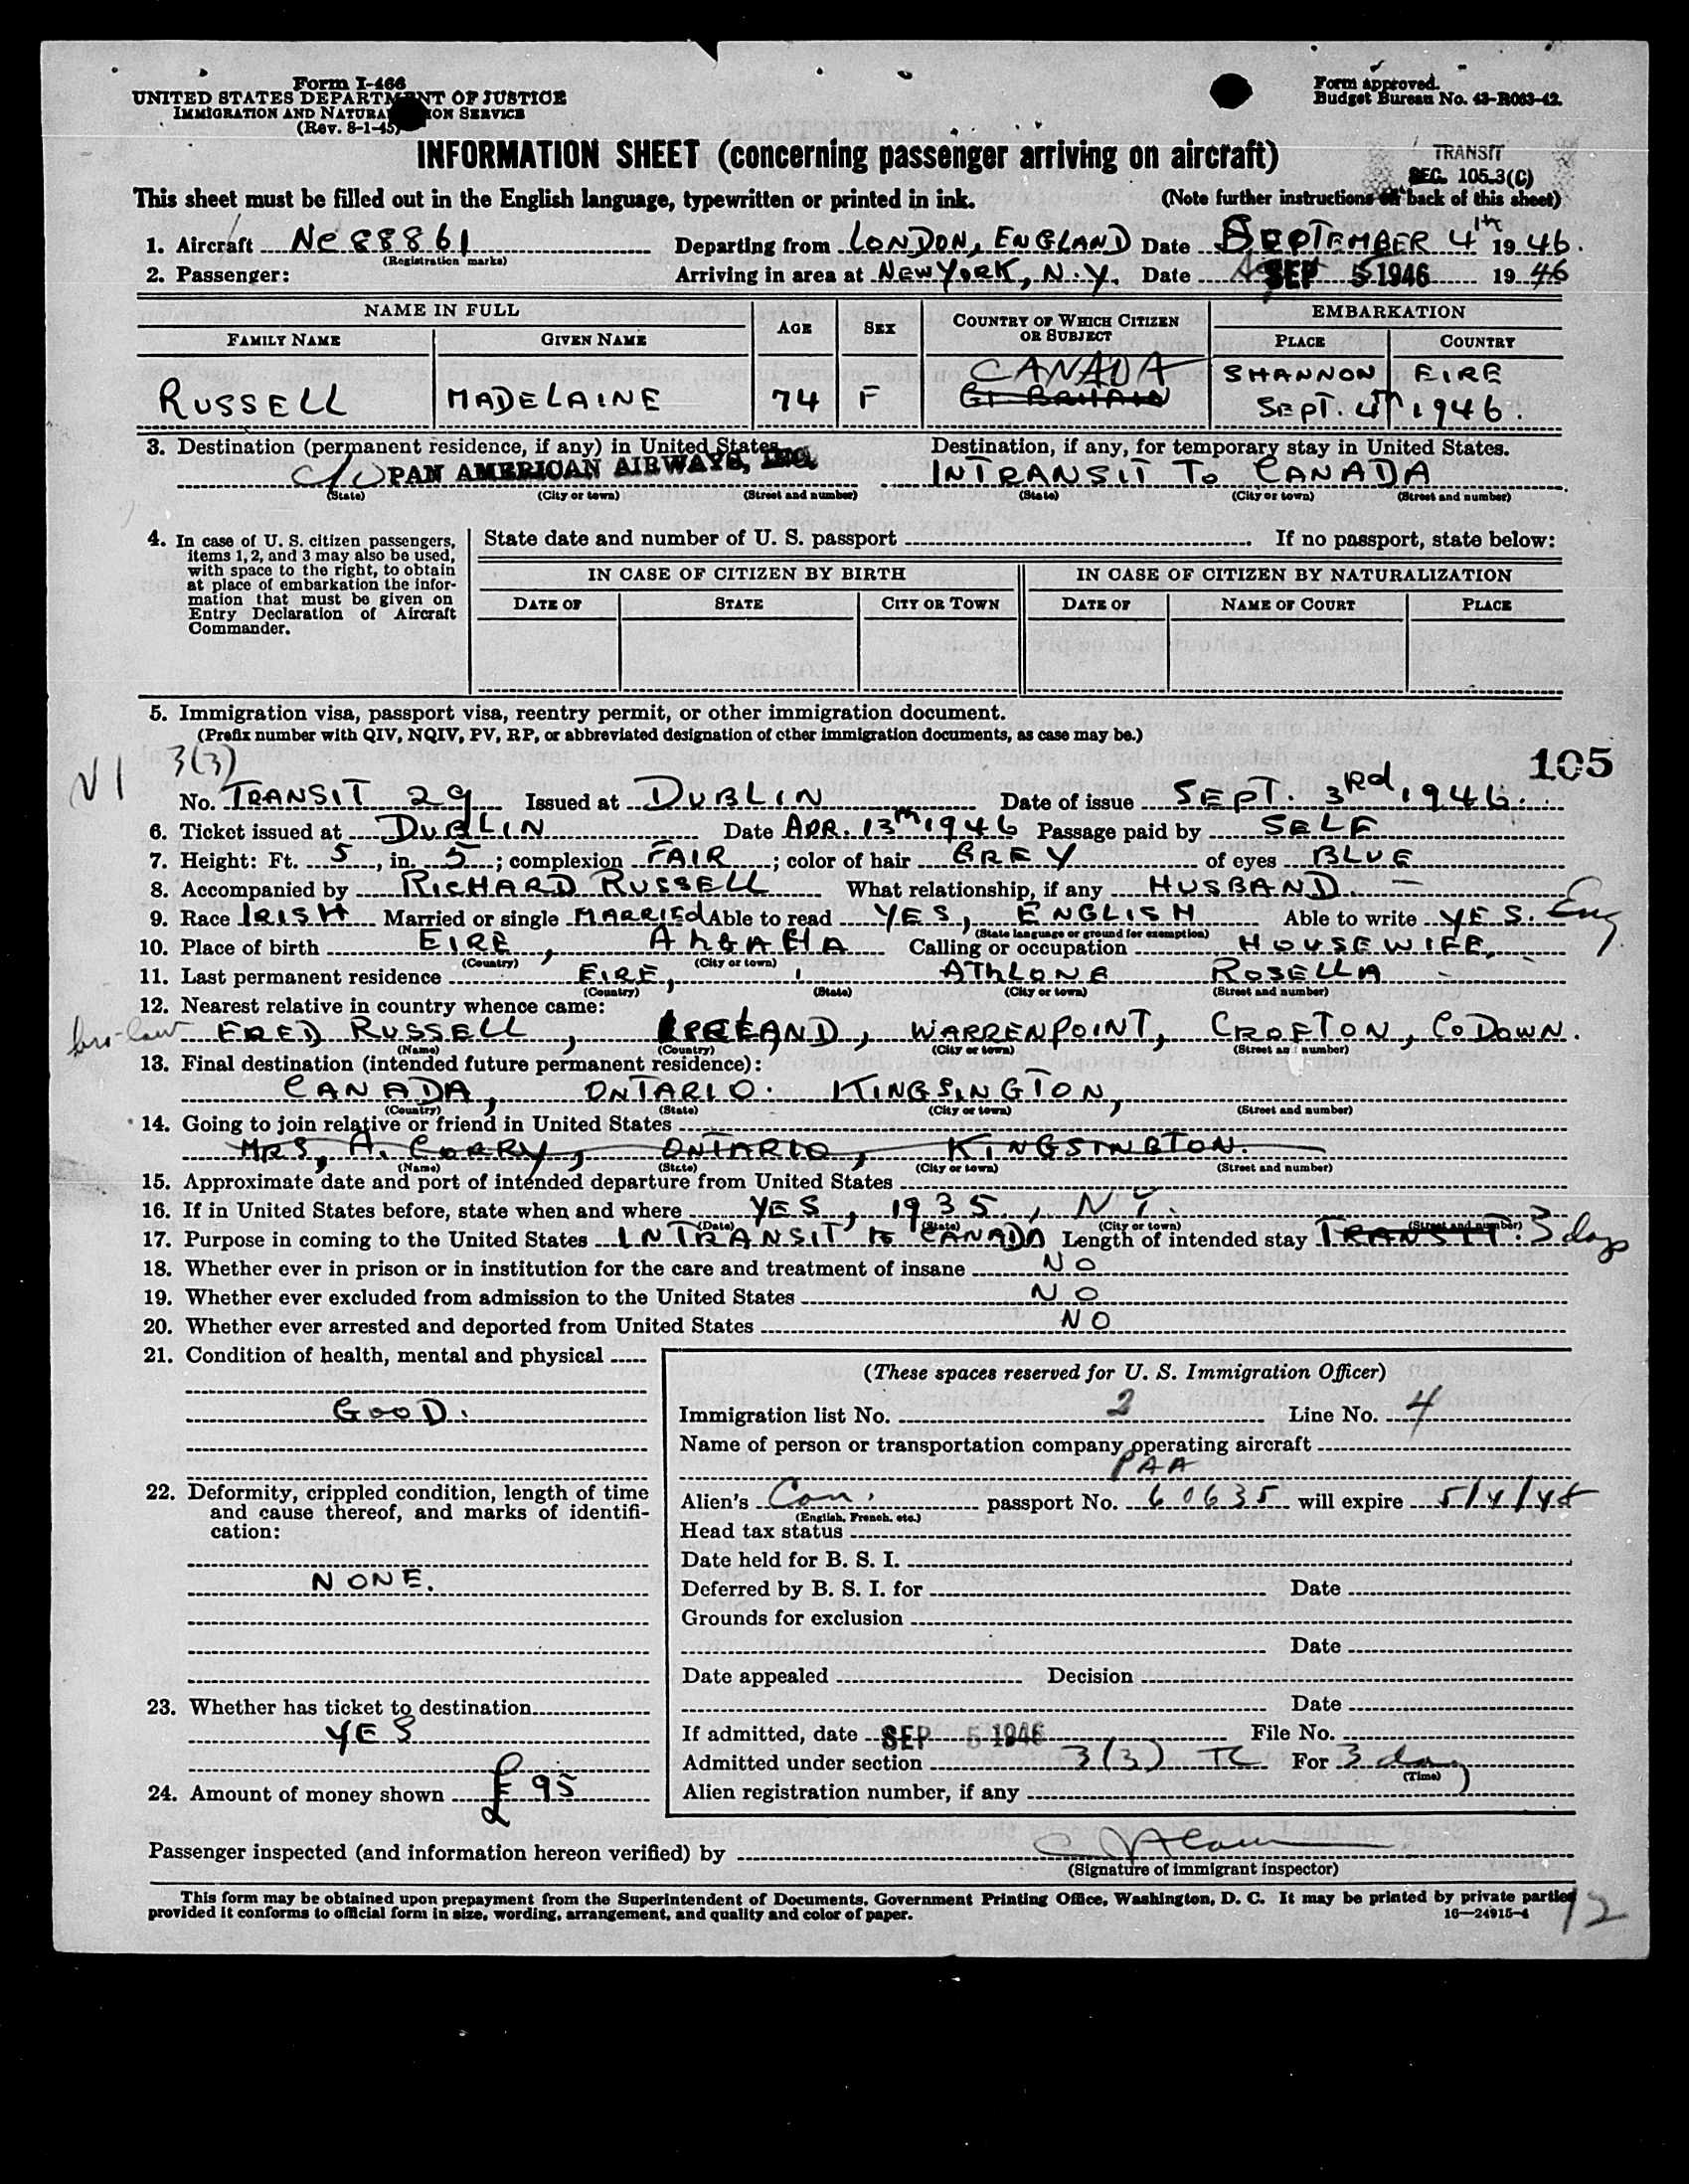 Form I-466
UNITED STATES DEPARTMENT OF JUSTICE
IMMIGRATION AND NATURALIZATION SERVICE
(Rev. 8-1-45)
Form approved.
Budget Bureau No. 43-R063-42.
INFORMATION SHEET (concerning passenger arriving on aircraft)
TRANSIT
SEC. 105.3(C)
This sheet must be filled out in the English language, typewritten or printed in ink. (Note further instructions on back of this sheet)
1. Aircraft NC 88861 Departing from LONDON, ENGLAND Date SEPTEMBER 4th 1946.
(Registration marks)
2. Passenger: Arriving in area at NEW YORK, N.Y. Date SEP 5 1946 1946
NAME IN FULL AGE SEX COUNTRY OF WHICH CITIZEN OR SUBJECT EMBARKATION
FAMILY NAME GIVEN NAME PLACE COUNTRY
CANADA SHANNON EIRE
RUSSELL MADELAINE 74 F Gt BRITAIN SEPT. 4th 1946.
3. Destination (permanent residence, if any) in United States. Destination, if any, for temporary stay in United States.
C/O PAN AMERICAN AIRWAYS, INC. INTRANSIT TO CANADA
(State) (City or town) (Street and number) (State) (City or town) (Street and number)
4. In case of U. S. citizen passengers, items 1, 2, and 3 may also be used, with space to the right, to obtain at place of embarkation the information that must be given on Entry Declaration of Aircraft Commander.
State date and number of U. S. passport If no passport, state below:
IN CASE OF CITIZEN BY BIRTH IN CASE OF CITIZEN BY NATURALIZATION
DATE OF STATE CITY OR TOWN DATE OF NAME OF COURT PLACE
5. Immigration visa, passport visa, reentry permit, or other immigration document.
(Prefix number with QIV, NQIV, PV, RP, or abbreviated designation of other immigration documents, as case may be.)
3(3) 105
No. TRANSIT 29 Issued at DUBLIN Date of issue SEPT. 3rd 1946.
6. Ticket issued at DUBLIN Date APR. 13th 1946 Passage paid by SELF
7. Height: Ft. 5, in. 5; complexion FAIR; color of hair GREY of eyes BLUE
8. Accompanied by RICHARD RUSSELL What relationship, if any HUSBAND.
9. Race IRISH Married or single MARRIED Able to read YES, ENGLISH Able to write YES. Eng.
(State language or ground for exemption)
10. Place of birth EIRE, Calling or occupation HOUSEWIFE,
(Country) (City or town)
11. Last permanent residence EIRE, ATHLONE ROSELLA
(Country) (State) (City or town) (Street and number)
12. Nearest relative in country whence came:
bro-law FRED RUSSELL, IRELAND, WARRENPOINT, CROFTON, CO DOWN.
(Name) (Country) (City or town) (Street and number)
13. Final destination (intended future permanent residence):
CANADA, ONTARIO. KINGSINGTON,
(Country) (State) (City or town) (Street and number)
14. Going to join relative or friend in United States
MRS, A. CORRY, ONTARIO, KINGSINGTON.
(Name) (State) (City or town) (Street and number)
15. Approximate date and port of intended departure from United States
16. If in United States before, state when and where YES, 1935, N Y.
(Date) (State) (City or town) (Street and number)
17. Purpose in coming to the United States INTRANSIT to CANADA Length of intended stay TRANSIT. 3 days
18. Whether ever in prison or in institution for the care and treatment of insane NO
19. Whether ever excluded from admission to the United States NO
20. Whether ever arrested and deported from United States NO
21. Condition of health, mental and physical
GOOD.
22. Deformity, crippled condition, length of time and cause thereof, and marks of identification:
NONE.
23. Whether has ticket to destination
YES
24. Amount of money shown £ 95
(These spaces reserved for U. S. Immigration Officer)
Immigration list No. 2 Line No. 4
Name of person or transportation company operating aircraft
PAA
Alien's Can. passport No. 60635 will expire 5/4/48
(English, French, etc.)
Head tax status
Date held for B. S. I.
Deferred by B. S. I. for Date
Grounds for exclusion
Date
Date appealed Decision
Date
If admitted, date SEP 5 1946 File No.
Admitted under section 3(3) TC For 3 days
(Time)
Alien registration number, if any
Passenger inspected (and information hereon verified) by
(Signature of immigrant inspector)
This form may be obtained upon prepayment from the Superintendent of Documents, Government Printing Office, Washington, D. C. It may be printed by private parties
provided it conforms to official form in size, wording, arrangement, and quality and color of paper. 16—24915-4
12